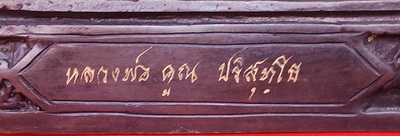 หลวงพ่อ คูณ ปริสุทฺโธ